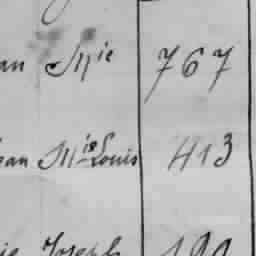 an Mie 767
ean Mie Louis 413
ie Joseph 190